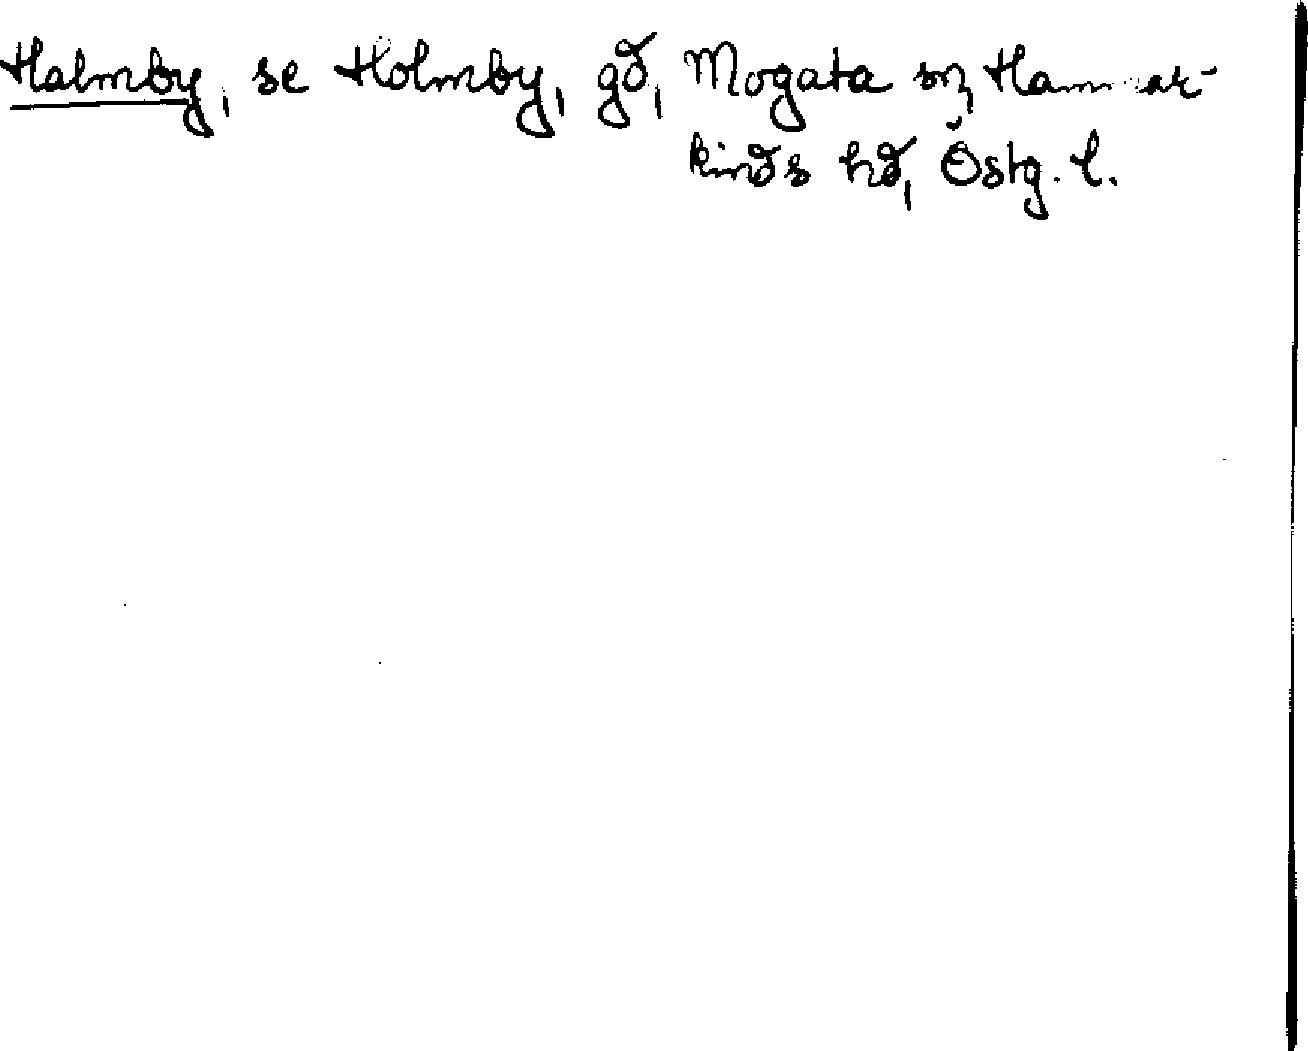 Halmby, se Holmby, gd, Mogata sn, Hammar-
kinds hd, Östg. l.